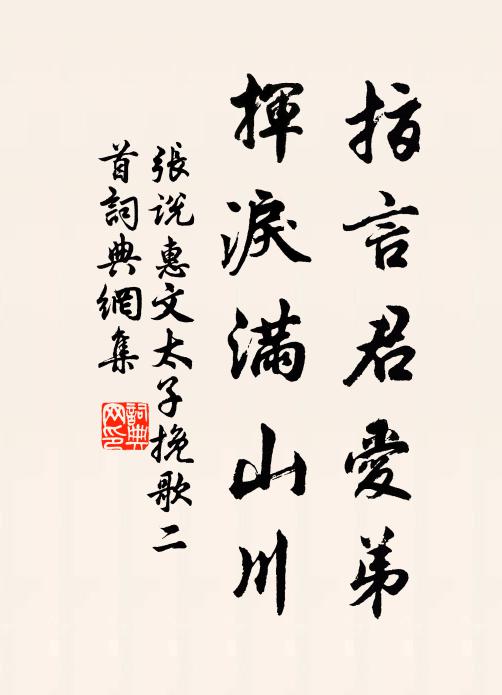 指言君愛弟
揮淚滿山川
張説惠文太子挽歌二
首詞典網集
詞典
网印